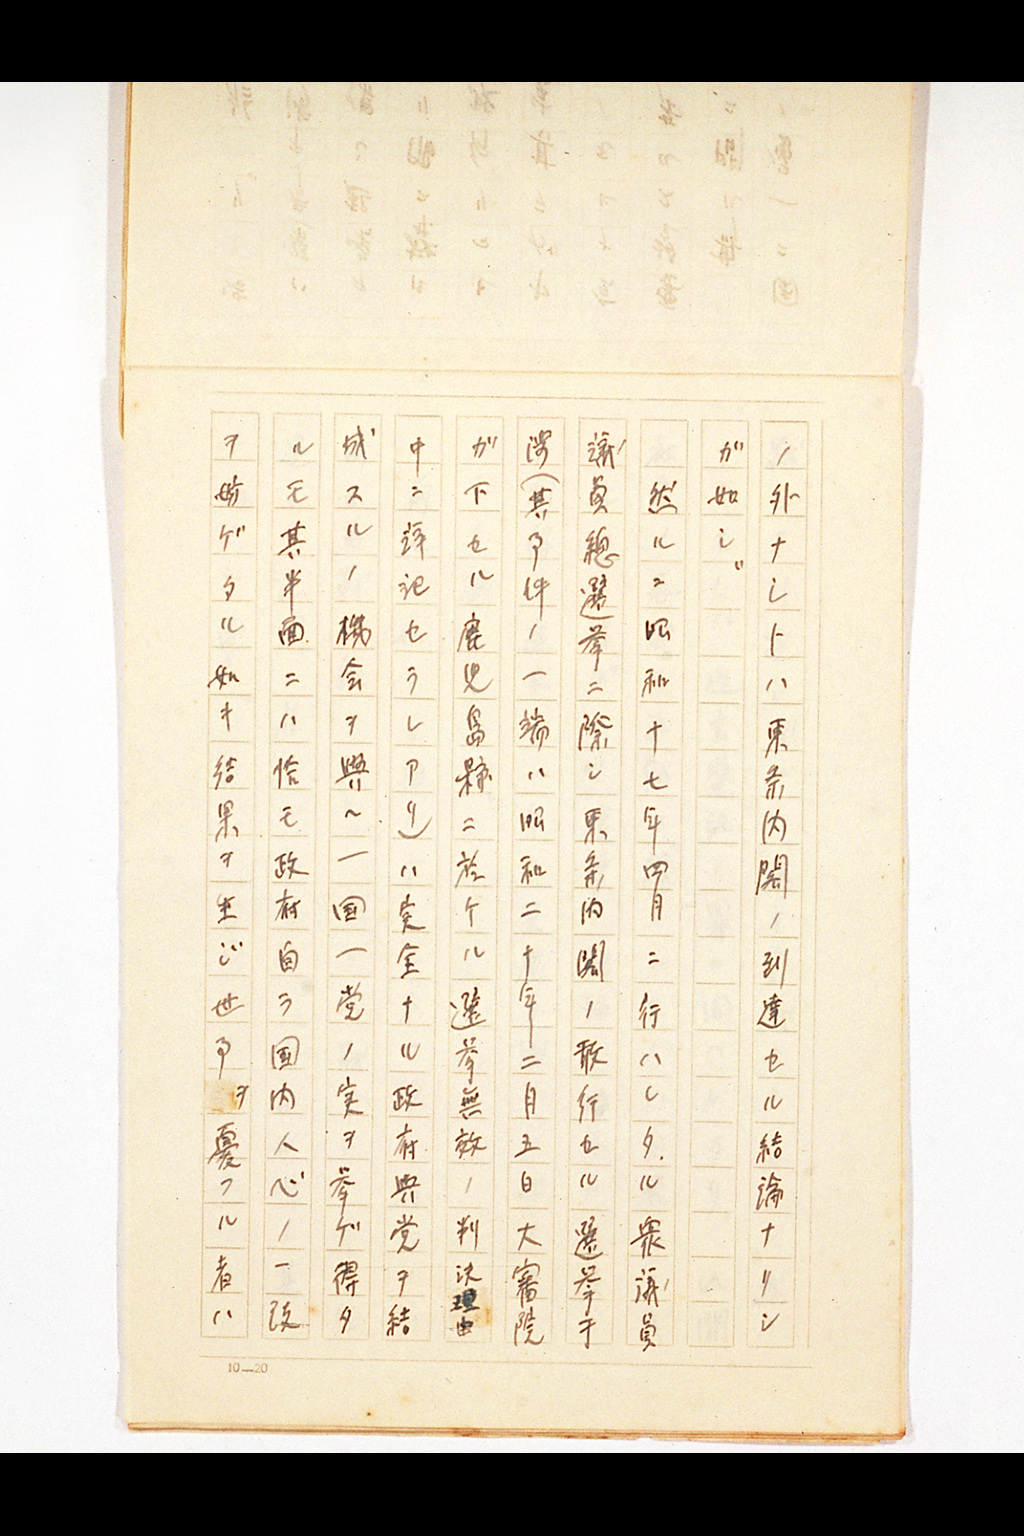 ノ外ナシトハ東条内閣ノ到達セル結論ナリシ
が如シ〟
然ルニ昭和十七年四月ニ行ハレタル衆議員
議員總選挙ニ際シ東条内閣ノ敢行セル選挙干
渉(其事件ノ一端ハ昭和二十年二月五日大審院
ガ下セル鹿児島縣ニ於ケル選挙無效ノ判決理由
中ニ詳記セラレアリ)ハ完全ナル政府與党ヲ結
成スルノ機会ヲ與ヘ一国一党ノ実ヲ挙ゲ得タ
ルモ其半面ニハ恰モ政府自ラ国内人心ノ一致
ヲ妨ゲタル如キ結果ヲ生ジ世事ヲ憂フル者ハ
10—20